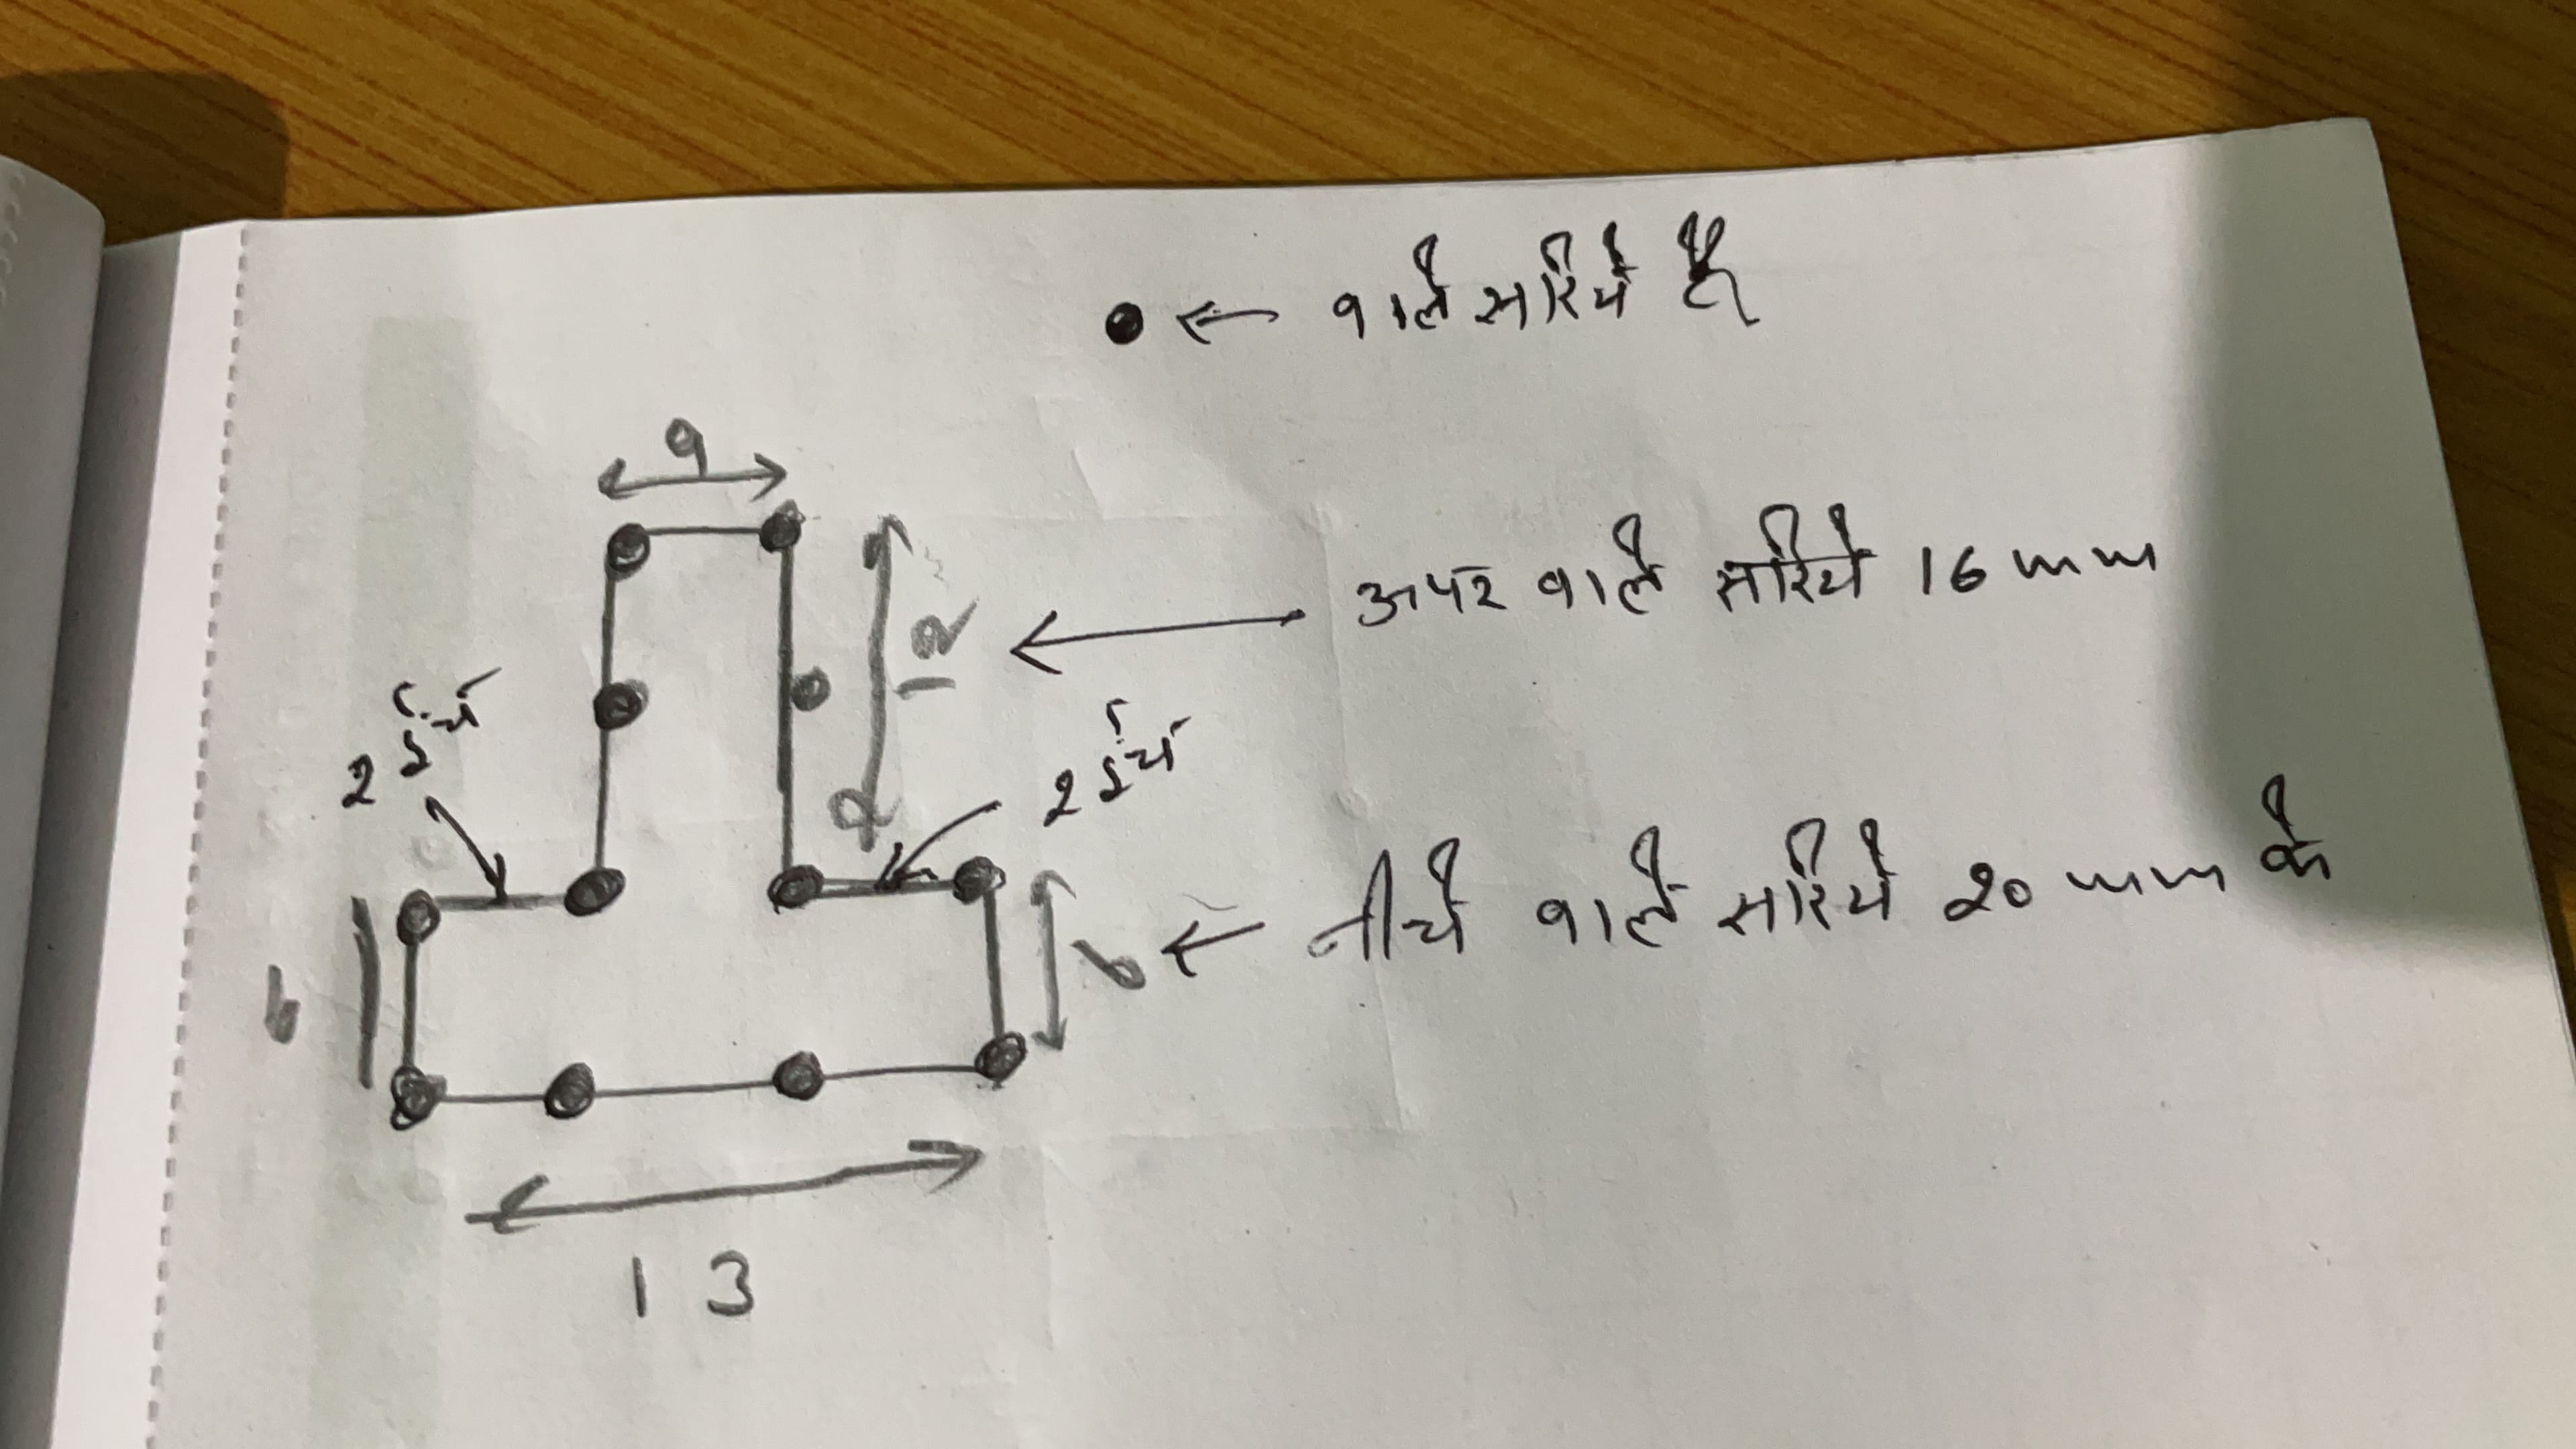 ● ← वाले सरिये है
9
12
← ऊपर वाले सरिये 16 mm
2 इंच
2 इंच
6
6 ← नीचे वाले सरिये 20 mm के
13